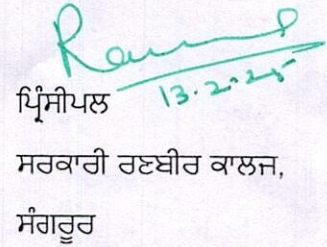 13.2.25
ਪ੍ਰਿੰਸੀਪਲ
ਸਰਕਾਰੀ ਰਣਬੀਰ ਕਾਲਜ,
ਸੰਗਰੂਰ